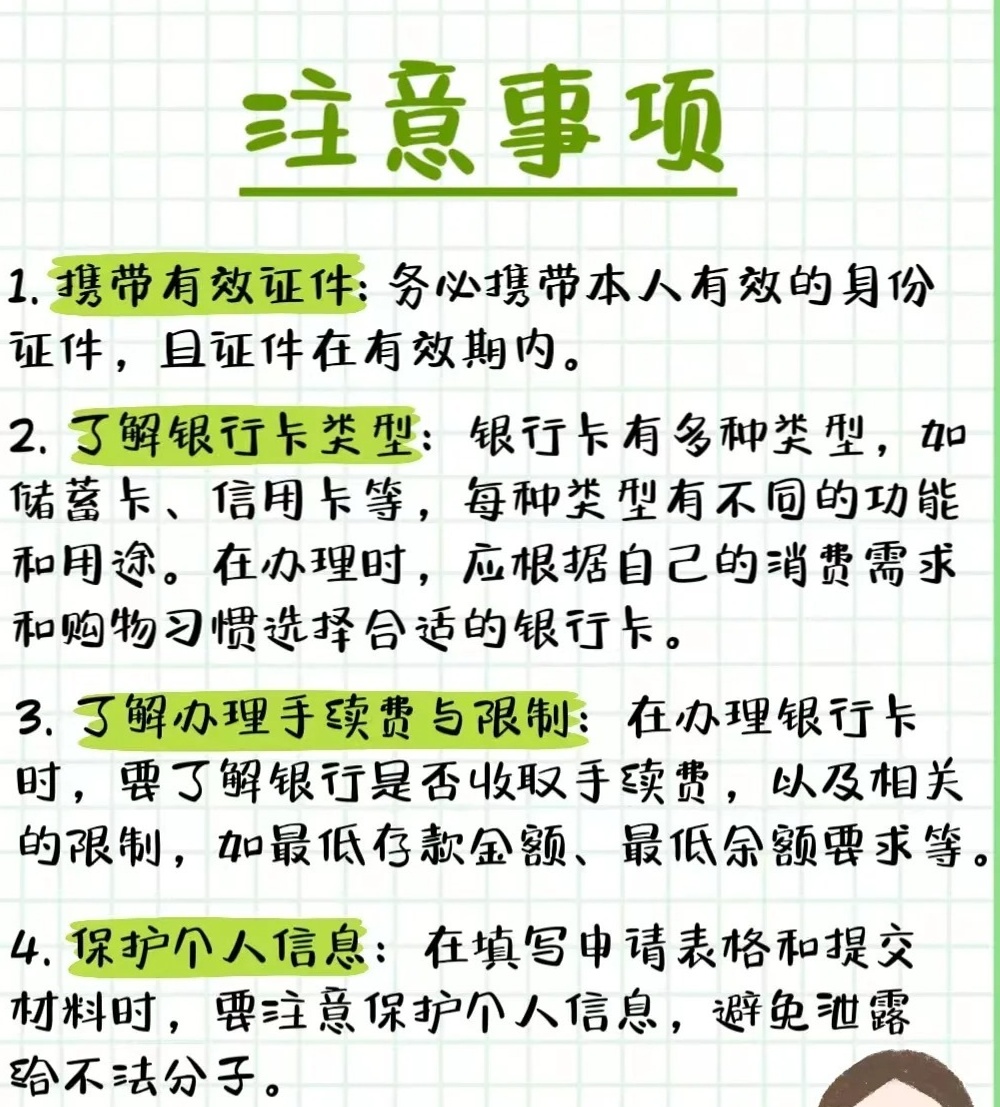 注意事项
1. 携带有效证件: 务必携带本人有效的身份
证件，且证件在有效期内。
2. 了解银行卡类型: 银行卡有多种类型，如
储蓄卡、信用卡等，每种类型有不同的功能
和用途。在办理时，应根据自己的消费需求
和购物习惯选择合适的银行卡。
3. 了解办理手续费与限制: 在办理银行卡
时，要了解银行是否收取手续费，以及相关
的限制，如最低存款金额、最低余额要求等。
4. 保护个人信息: 在填写申请表格和提交
材料时，要注意保护个人信息，避免泄露
给不法分子。